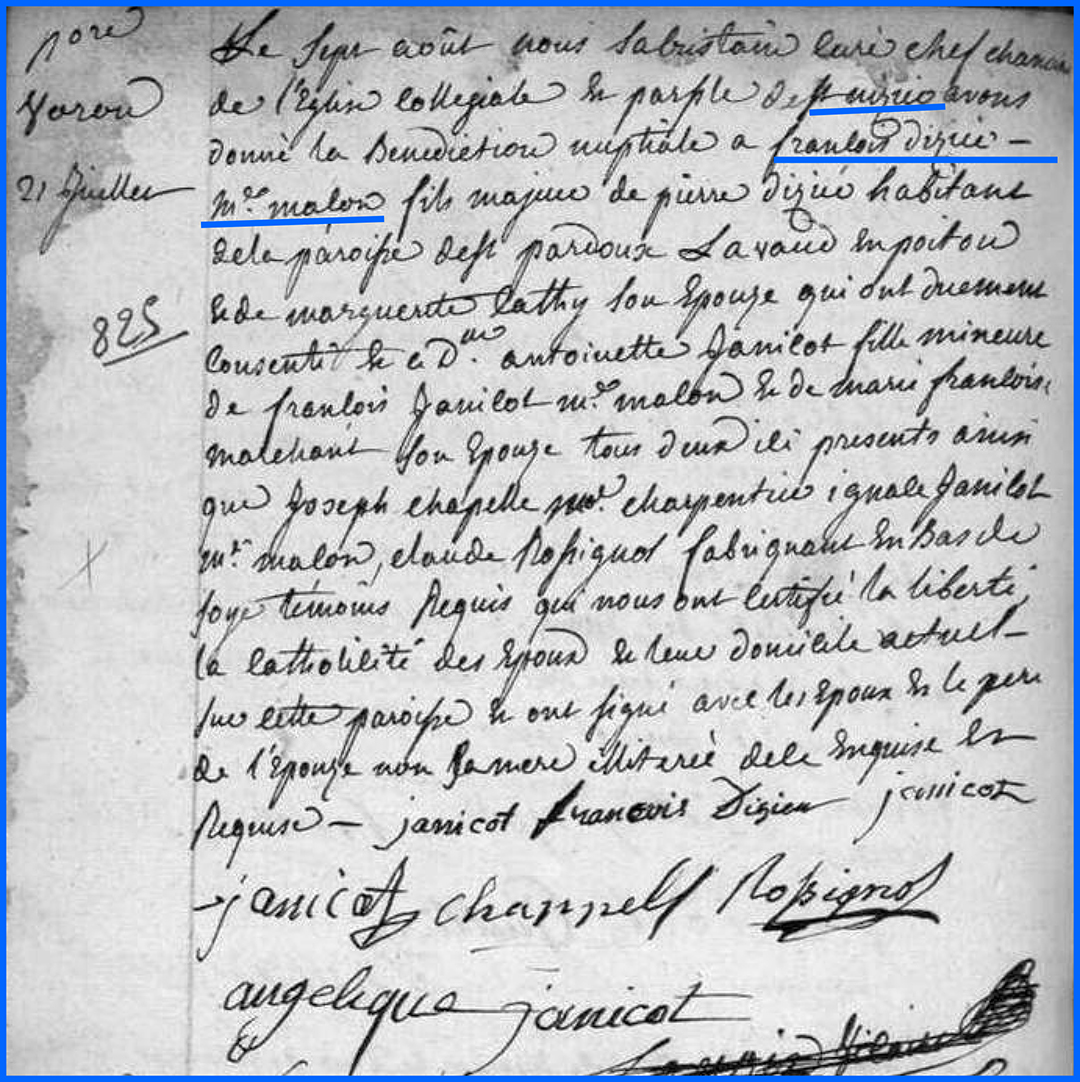 Le sept août nous sacristain curé chef chanoin
de l'Eglise Collégiale et paroisse de St nizier avons
donné la Benediction nuptiale a françois dizieé —
21 Juillet
mre. maçon fils majeur de pierre dizieé habitant
de la paroisse de St pardoux Lavaud en poitou
825
et de marguerite Cathy son Epouze qui ont duement
Consenti et a Dlle. antoinette Janicot fille mineure
de françois Janicot mre. maçon et de marie françoise
marchant son Epouze tous deux ici presents ainsi
que Joseph chapelle mre. charpentier ignace Janicot
mre. maçon, claude Rossignol fabriquant en Bas de
soye témoins Requis qui nous ont certifié la liberté,
la catholicité des Epoux et leur domicile actuel
sur cette paroisse et ont signé avec les Epoux et le pere
de l'Epouze non sa mere illiterée de ce Enquise et
Requise — janicot françois Dizieu janicot
janicot chappelle Rossignol
angelique janicot